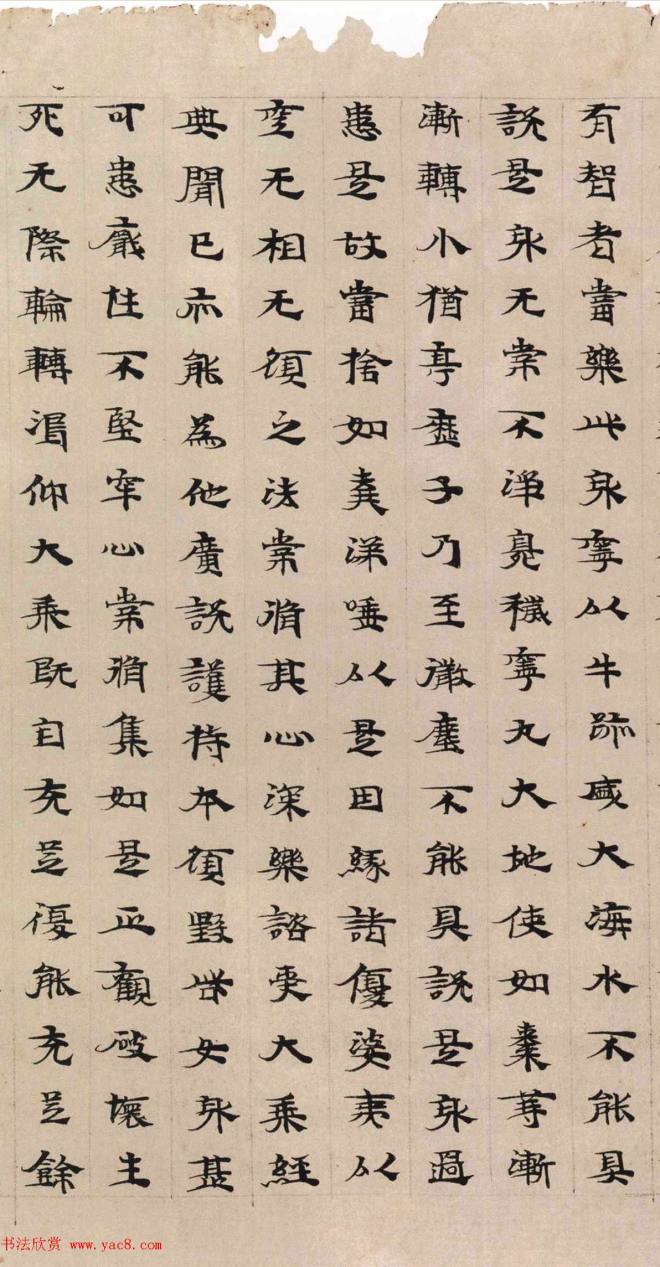 有智者當樂此身寧以牛跡盛大海水不能具
說是身无常不淨臭穢寧丸大地使如棗等漸
漸轉小猶亭歷子乃至微塵不能具說是身過
患是故當捨如棄涕唾以是因緣諸優婆夷以
空无相无願之法常脩其心深樂諮受大乘經
典聞已亦能為他廣說護持本願毀呰女身甚
可患厭性不堅牢心常脩集如是正觀破壞生
死无際輪轉渴仰大乘既自充足復能充足餘
书法欣赏 www.yac8.com